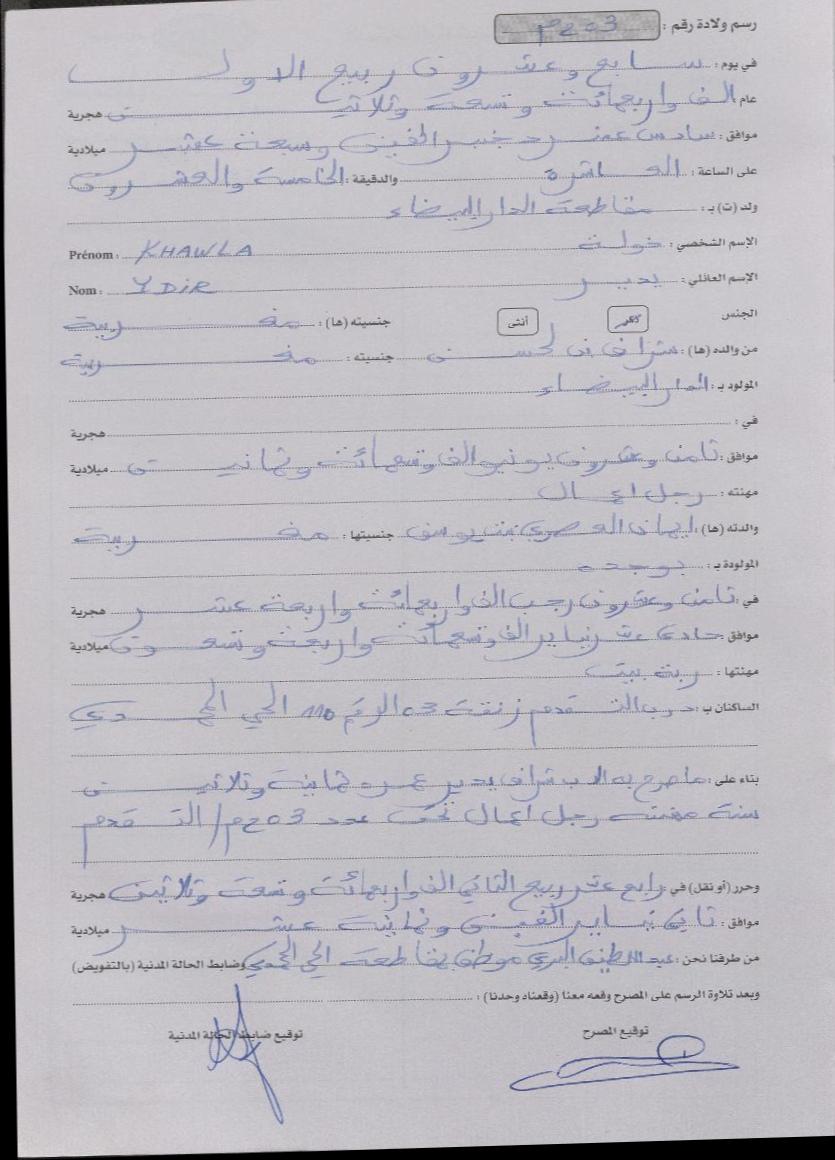 رسم ولادة رقم :
في يوم : سابع وعشرون ربيع الاول
عام الف واربعمائة وتسعة وثلاثين هجرية
موافق : سادس عشر دجنبر الفين وسبعة عشر ميلادية
على الساعة : العاشرة والدقيقة : الخامسة والعشرون
ولد (ت) بـ : مقاطعة الدار البيضاء
الإسم الشخصي : خولة Prénom : KHAWLA
الإسم العائلي : يدير Nom : YDIR
الجنس ذكر أنثى جنسيته (ها) : مغربية
من والده (ها) : بن لحسن جنسيته : مغربية
المولود بـ : الدار البيضاء
في : هجرية
موافق : ثامن وعشرون يونيو الف وتسعمائة وثمانين ميلادية
مهنته : رجل اعمال
والدته (ها) : ايمان بنت يوسف جنسيتها : مغربية
المولودة بـ : بوجدة
في : ثامن وعشرون رجب الف واربعمائة واربعة عشر هجرية
موافق : حادي عشر يناير الف وتسعمائة واربعة وتسعون ميلادية
مهنتها : ربة بيت
الساكنان ب : درب التقدم زنقة 03 الرقم 110 الحي المحمدي
بناء على : ما صرح به الاب يدير عمره ثمانية وثلاثين
سنة مهنته رجل اعمال تحت عدد / التقدم
وحرر (أو نقل) في : رابع عشر ربيع الثاني الف واربعمائة وتسعة وثلاثين هجرية
موافق : ثاني يناير الفين وثمانية عشر ميلادية
من طرفنا نحن : عبد اللطيف موظف بمقاطعة الحي المحمدي وضابط الحالة المدنية (بالتفويض)
وبعد تلاوة الرسم على المصرح وقعه معنا (وقعناه وحدنا) :
توقيع المصرح توقيع ضابط الحالة المدنية